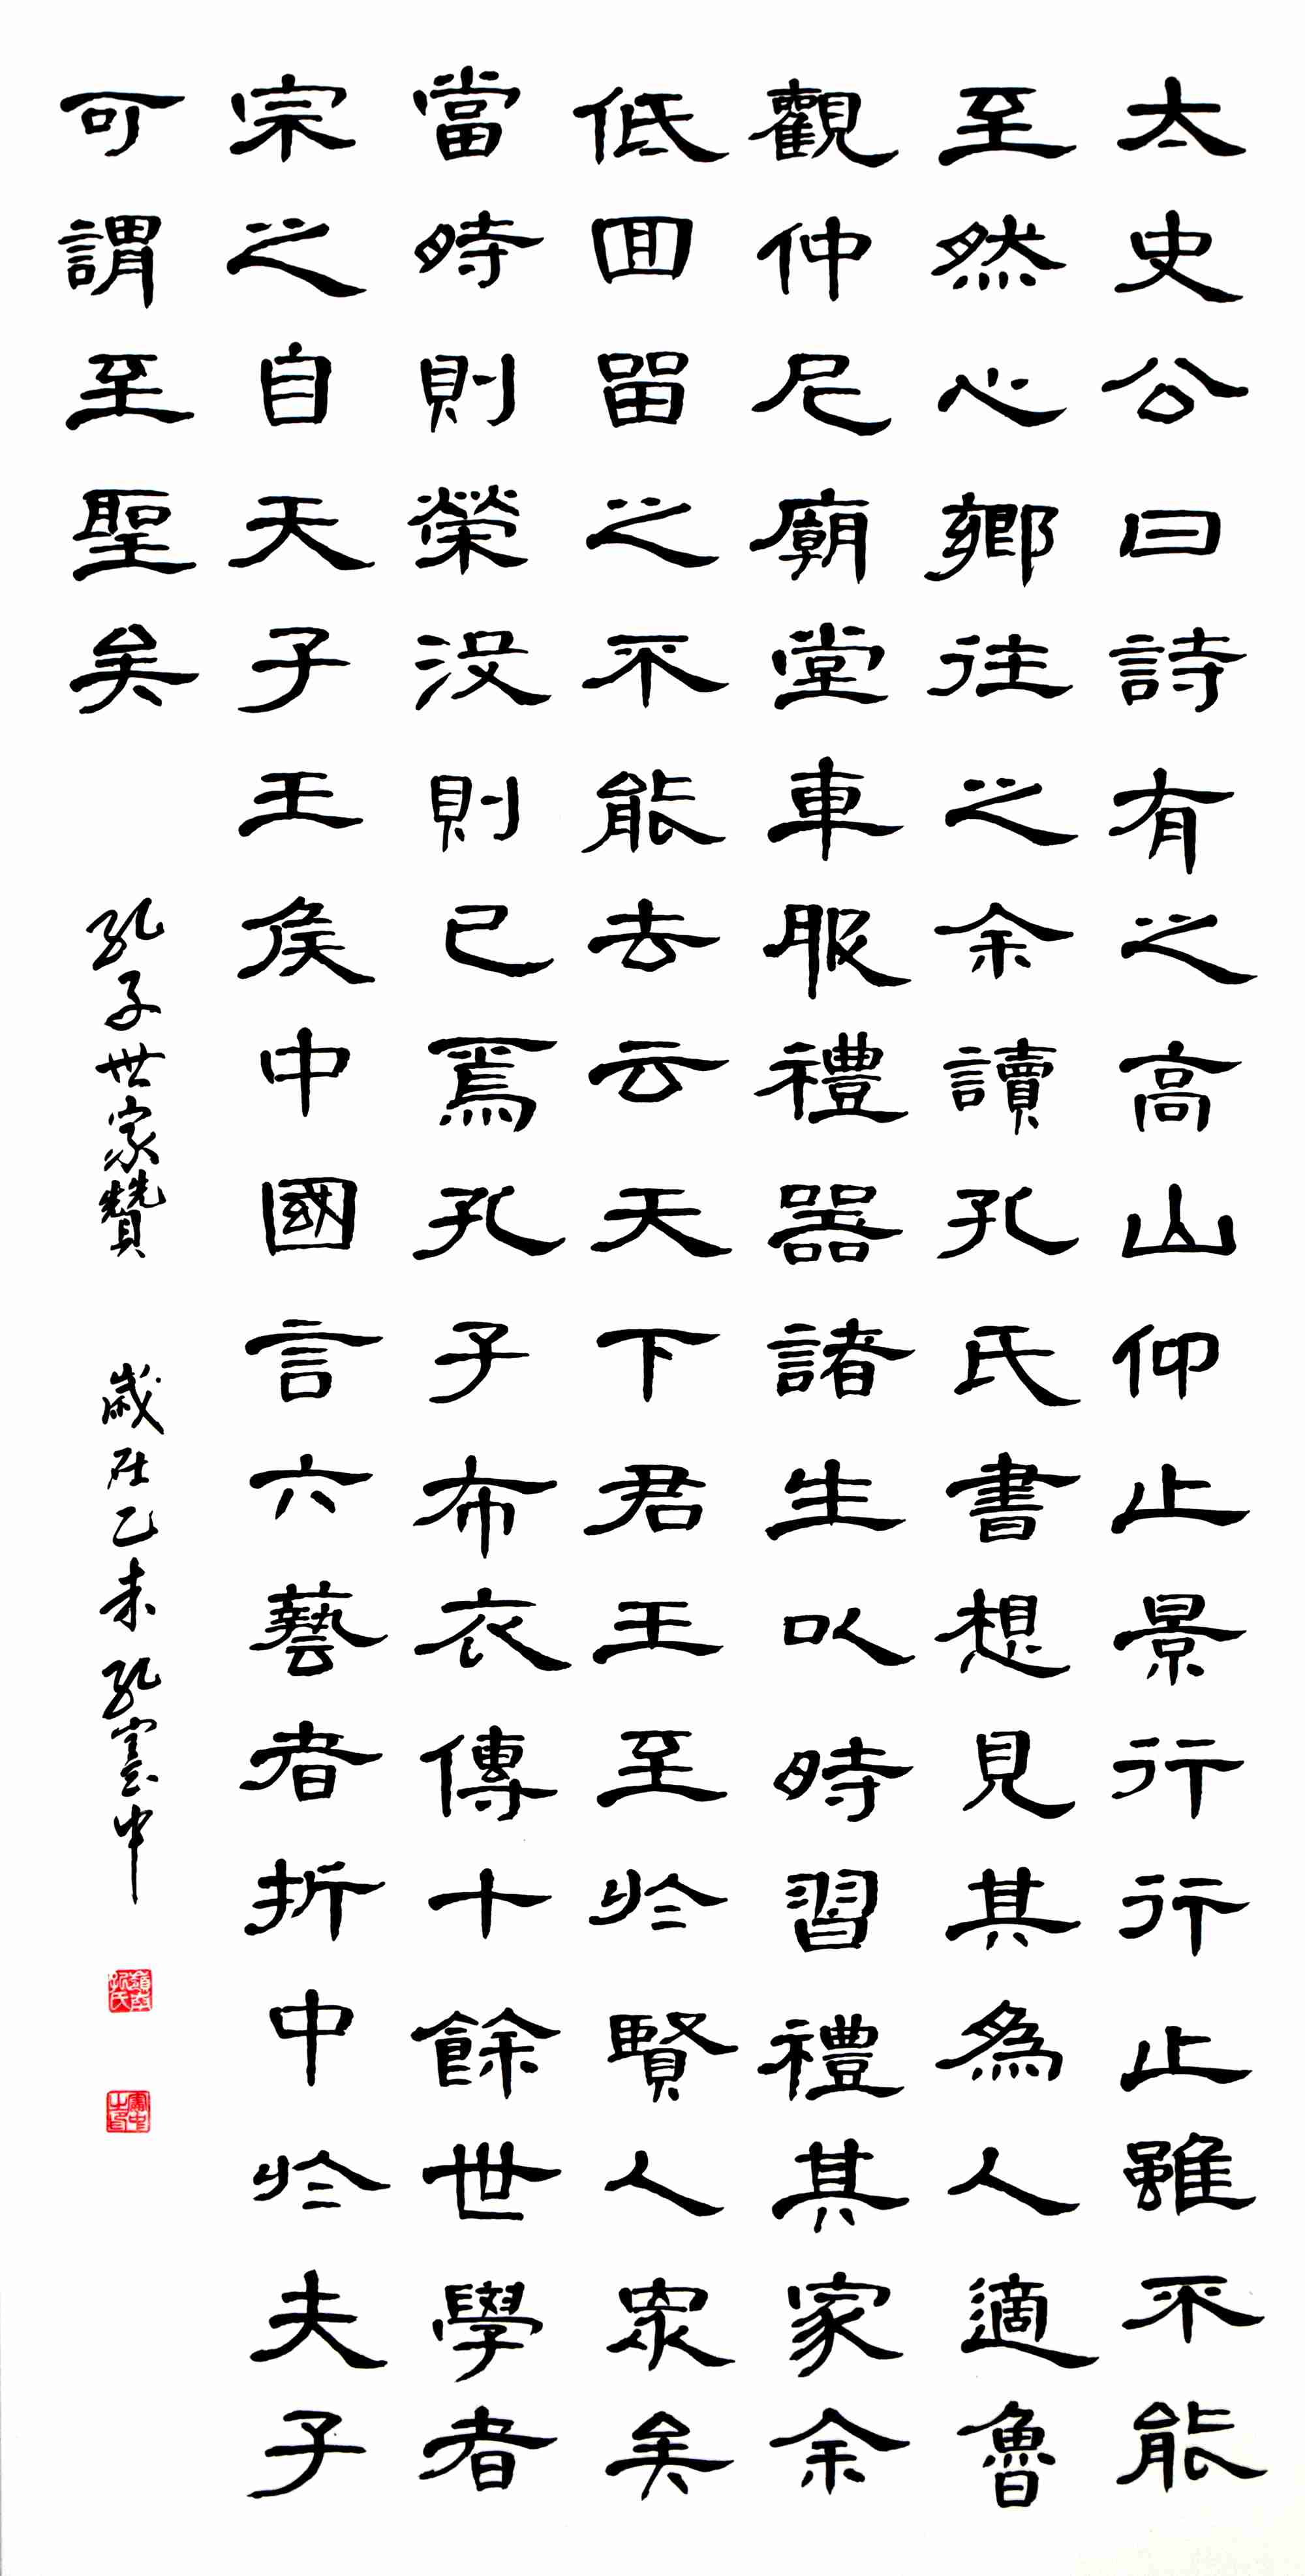 太史公曰詩有之高山仰止景行行止雖不能
至然心鄉往之余讀孔氏書想見其為人適魯
觀仲尼廟堂車服禮器諸生以時習禮其家余
低回留之不能去云天下君王至於賢人眾矣
當時則榮沒則已焉孔子布衣傳十餘世學者
宗之自天子王侯中國言六藝者折中於夫子
可謂至聖矣
孔子世家贊 歲在乙未 孔憲中